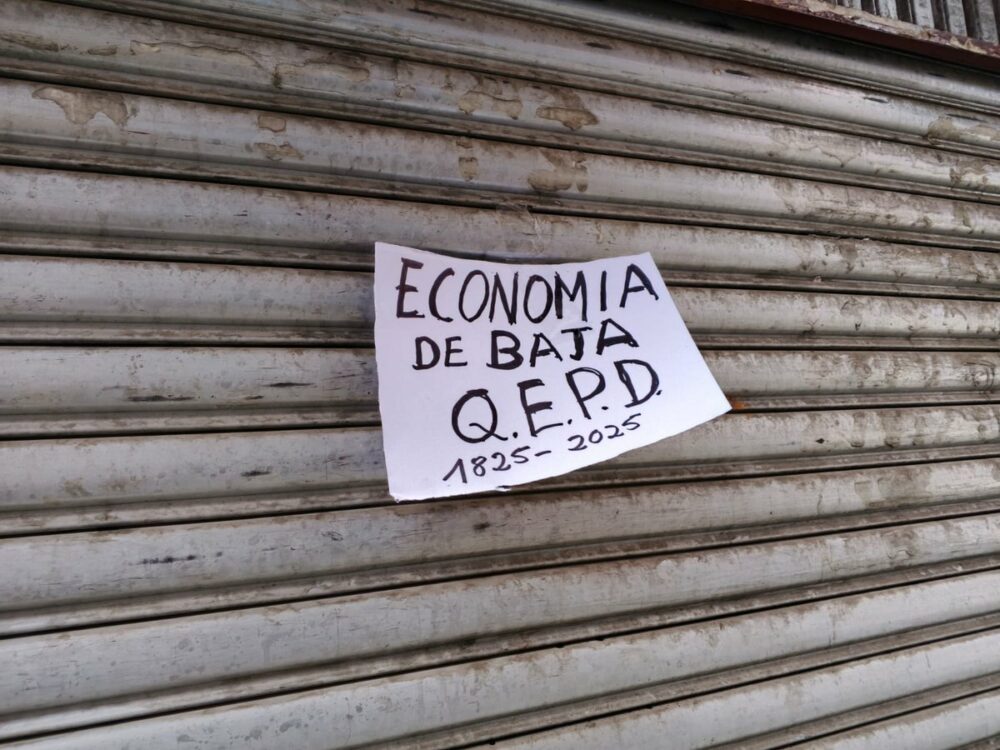 ECONOMIA
DE BAJA
Q.E.P.D.
1825-2025